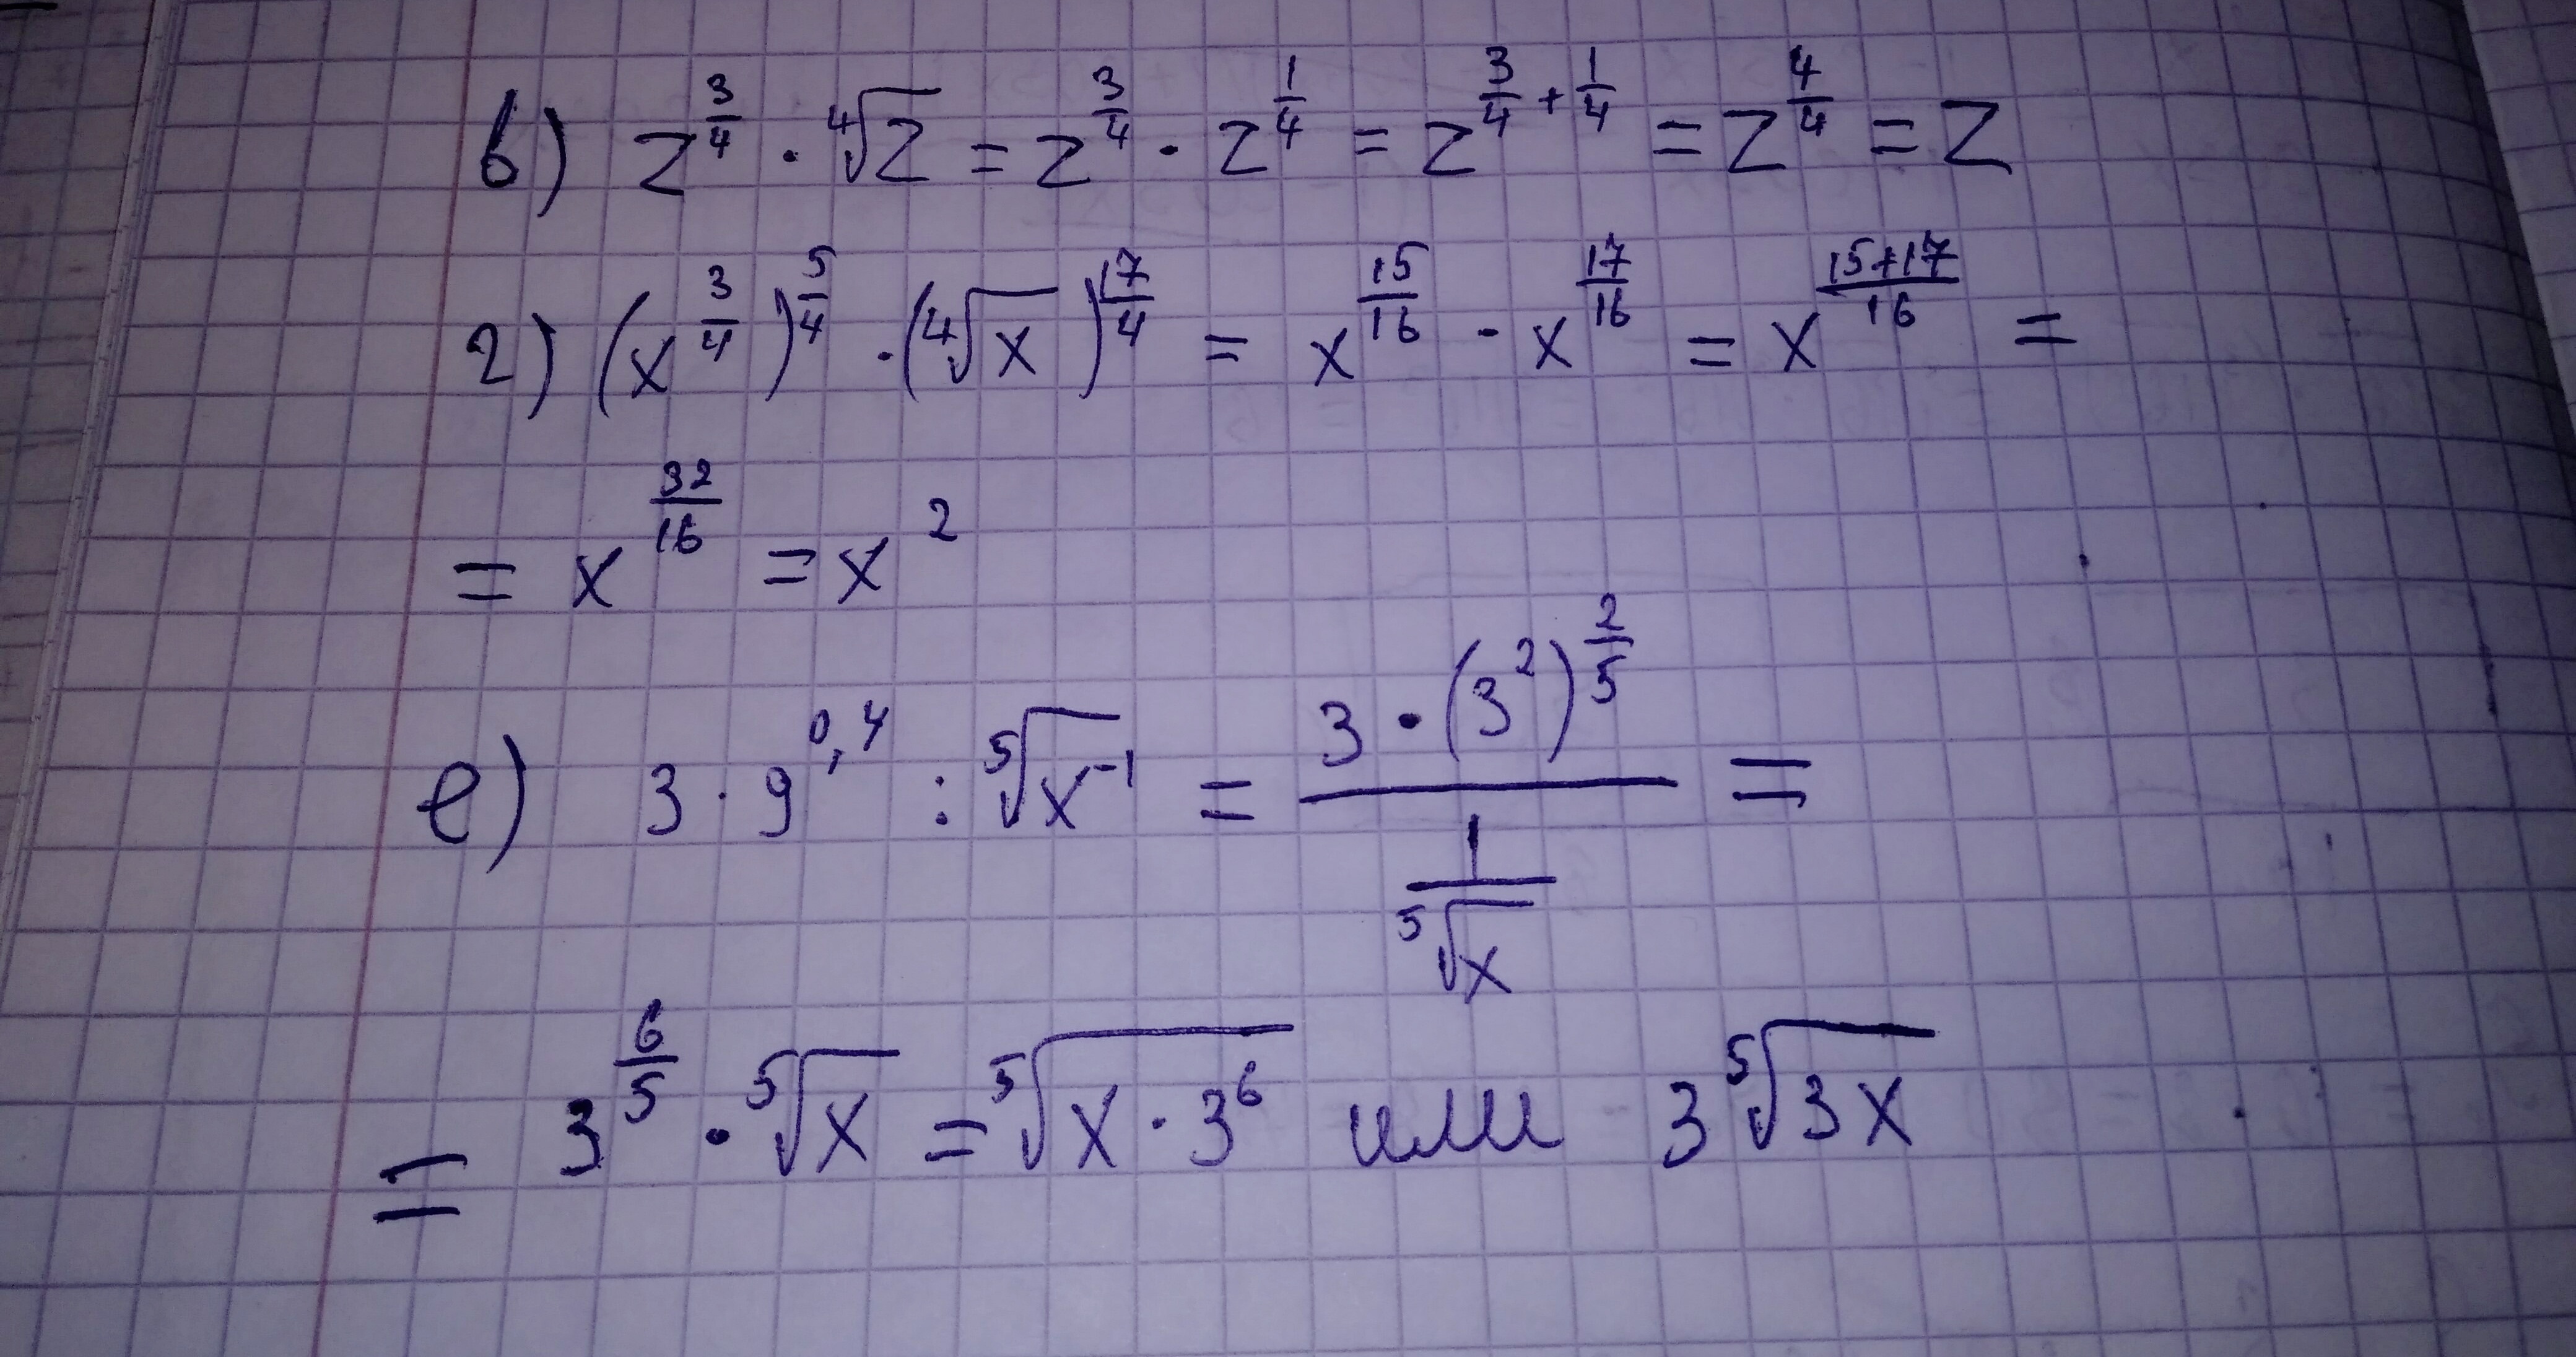 в) z^(3/4) · ⁴√z = z^(3/4) · z^(1/4) = z^(3/4 + 1/4) = z^(4/4) = z
г) (x^(3/4))^(5/4) · (⁴√x)^(17/4) = x^(15/16) · x^(17/16) = x^((15+17)/16) =
= x^(32/16) = x^2
е) 3 · 9^(0,4) : ⁵√(x^(-1)) = (3 · (3^2)^(2/5)) / (1/⁵√x) =
= 3^(6/5) · ⁵√x = ⁵√(x · 3^6) или 3 ⁵√(3x)